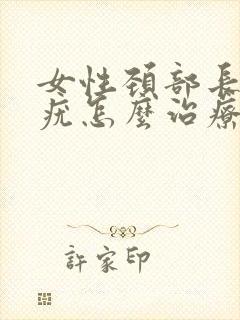 女性頚部長
疣怎麼治療
許家印